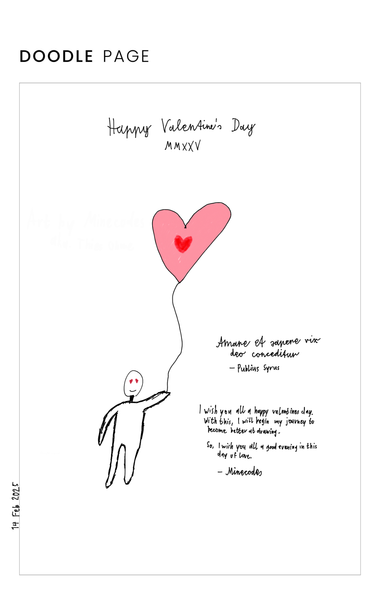 DOODLE PAGE
Happy Valentine's Day
MMXXV
Amare et sapere vix
deo conceditur
– Publius Syrus
I wish you all a happy valentines day.
With this, I will begin my journey to
become better at drawing.
So, I wish you all a good evening in this
day of love.
– Minecodes
14 Feb 2025